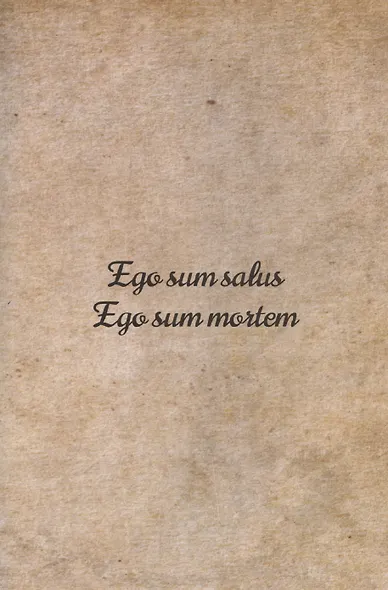 Ego sum salus
Ego sum mortem